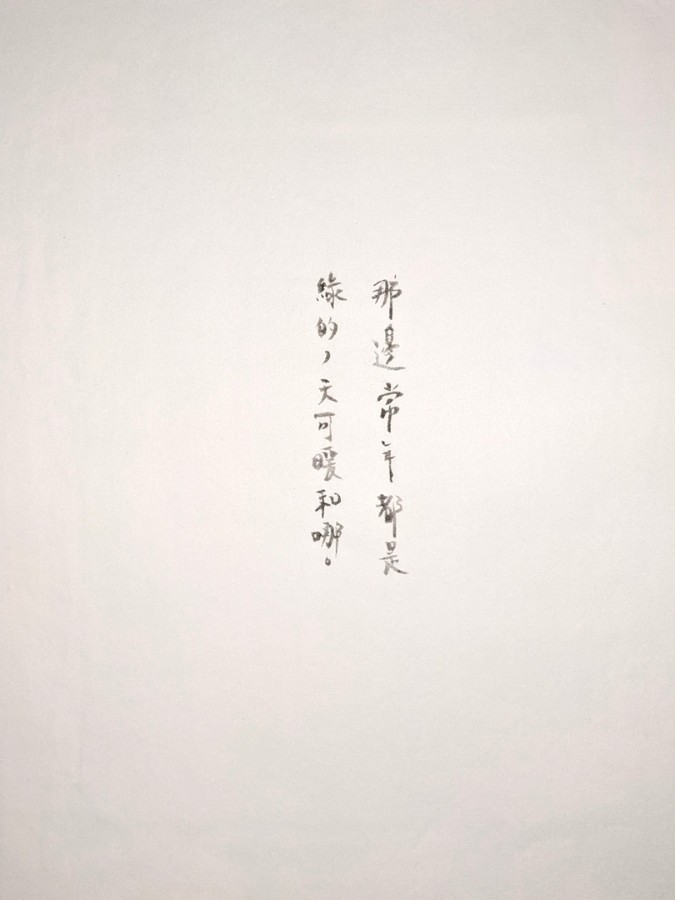 那邊常年都是
綠的，天可暖和哪。